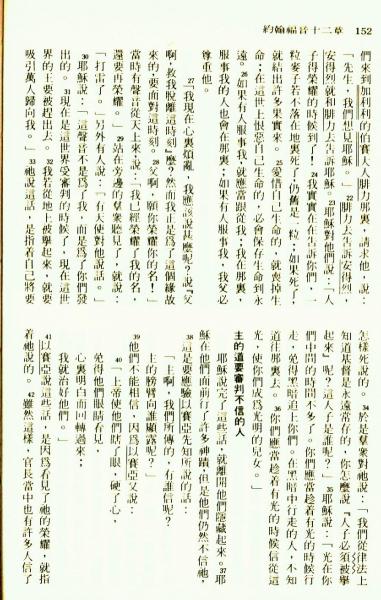 約翰福音十二章
152
們來到加利利的伯賽大人腓力那裏，請求他，說：
「先生，我們想見耶穌。」22腓力去告訴安得烈，
安得烈就和腓力去告訴耶穌。23耶穌對他們說：「人
子得榮耀的時候到了！24我實實在在告訴你們，一
粒麥子若不落在地裏死了，仍舊是一粒；如果死了，
就結出許多果實來。25愛惜自己生命的，就喪掉生
命；在這世上恨惡自己生命的，必會保存生命到永
遠。26如果有人服事我，就應當跟從我；我在那裏，
服事我的人也會在那裏；如果有人服事我，我父必
尊重他。
27「我現在心裏煩亂，我應該說甚麼呢？說『父
啊，救我脫離這時刻』麼？然而我正是爲了這個緣故
來的，要面對這時刻。28父啊，願你榮耀你的名！」
當時有聲音從天上來，說：「我已經榮耀了我的名，
還要再榮耀。」29站在旁邊的羣衆聽見了，就說：
「打雷了。」另外有人說：「有天使對他說話。」
30耶穌說：「這聲音不是爲了我，而是爲了你們發
出的。31現在是這世界受審判的時候了，現在這世
界的王要被趕出去。32我若從地上被舉起來，就要
吸引萬人歸向我。」33祂說這話，是指着自己將要
怎樣死說的。34於是羣衆對祂說：「我們從律法上
知道基督是永遠常存的，你怎麼說『人子必須被舉
起來』呢？這人子是誰呢？」35耶穌說：「光在你
們中間的時間不多了。你們應當趁着有光的時候行
走，免得黑暗追上你們。在黑暗中行走的人，不知
道往那裏去。36你們應當趁着有光的時候信從這
光，使你們成爲光明的兒女。」
主的道要審判不信的人
耶穌說完了這些話，就離開他們隱藏起來。37耶
穌在他們面前行了許多神蹟，但是他們仍然不信祂，
38這是要應驗以賽亞先知所說的話：
「主啊，我們所傳的，有誰信呢？
主的膀臂向誰顯露呢？」
39他們不能相信，因爲以賽亞又說：
40「上帝使他們瞎了眼，硬了心，
免得他們眼睛看見，
心裏明白而回轉過來；
我就治好他們。」
41以賽亞說這些話，是因爲看見了祂的榮耀，就指
着祂說的。42雖然這樣，官長當中也有許多人信了